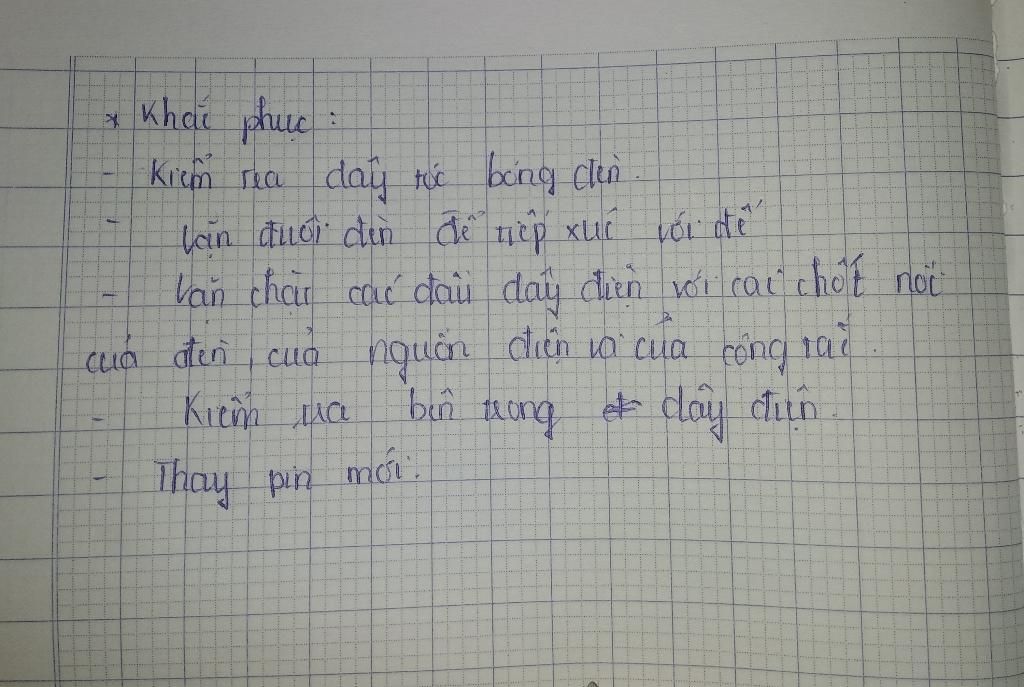 * Khắc phục :
- Kiểm tra dây tóc bóng đèn.
- Vặn đuôi đèn để tiếp xúc với đế
- Vặn chặt các đầu dây điện với các chốt nối
của đèn, của nguồn điện và của công tắc.
- Kiểm tra bên trong dây điện.
- Thay pin mới.